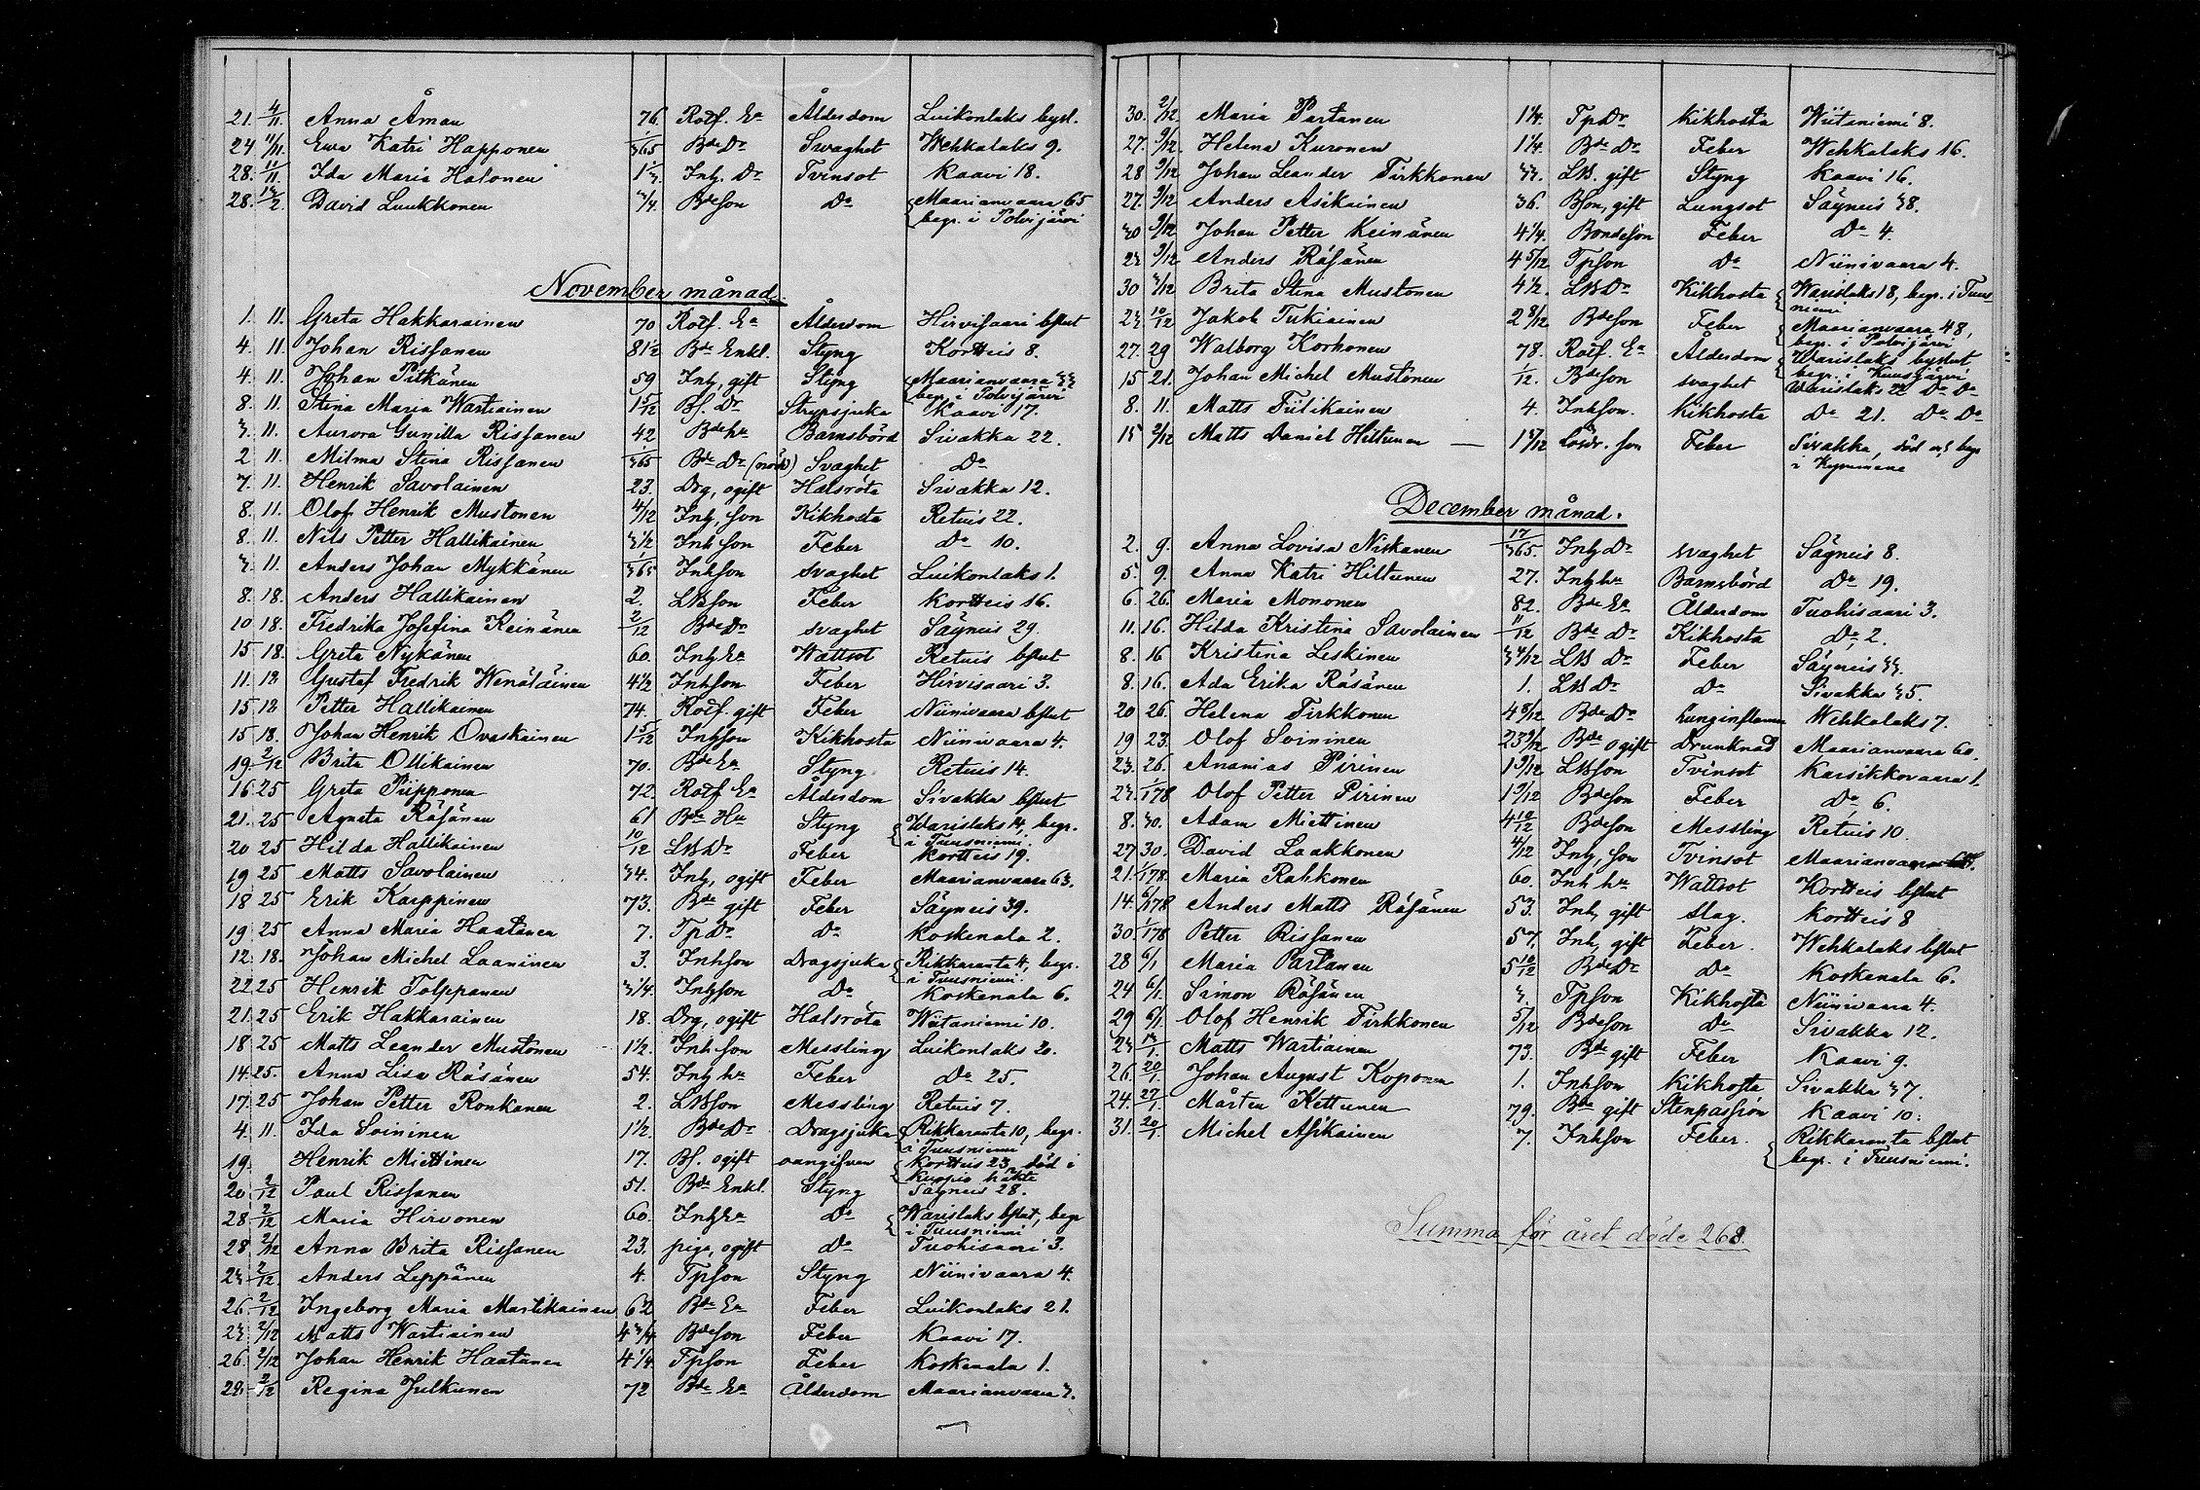 21. 4/11. Anna Åman 76. Rotf. Ea Ålderdom Luikonlaks bysl.
24 11/11. Ewa Katri Happonen 1/365 Bde Dr Swaghet Wehkalaks 9.
28. 11/11 Ida Maria Halonen Inh. Dr Tvinsot Kaavi 18.
28. David Luukkonen 3/4. Bdeson Do Maarianvaara 65
begr. i Polvijärvi
November månad.
1. 11. Greta Hakkarainen 70 Rotf. Ea Ålderdom Hirvisaari bslut
4. 11. Johan Rissanen 81 1/2 Bde Enkl. Styng Kortteis 8.
4. 11. Johan Pitkänen 59 Inh, gift Styng Maarianvaara 33
begr. i Polvijärvi
8. 11. Stina Maria Wartiainen 1 5/12 Bf. Dr Strypsjuka Kaavi 17.
3. 11. Aurora Gunilla Rissanen 42 Bde hu Barnsbörd Sivakka 22.
2 11. Milma Stina Rissanen 1/365 Bde Dr Svaghet Do
7. 11. Henrik Savolainen 23. Drg, ogift Halsröta Sivakka 12.
8. 11. Olof Henrik Mustonen 4/12 Inh, son Kikhosta Retuis 22.
8. 11. Nils Petter Hallikainen 3 1/2 Inh son Feber Do 10.
3. 11. Anders Johan Mykkänen 1/365 Inhson svaghet Luikonlaks 1.
8. 18. Anders Hallikainen 2. LBson Feber Kortteis 16.
10 18. Fredrika Josefina Keinänen 2/12 Bde Dr svaghet Säyneis 29.
15 18. Greta Nykänen 60. Inh Ea Wattsot Retuis bslut
11. 18 Gustaf Fredrik Wenäläinen 4 1/2 Inhson Feber Hirvisaari 3.
15 18 Petter Hallikainen 74. Rotf. gift Feber Niinivaara bslut
15 18. Johan Henrik Ovaskainen 1 5/12 Inhson Kikhosta Niinivaara 4.
19. 2/12 Brita Ollikainen 70. Bde Ea Styng Retuis 14.
16 25 Greta Piipponen 72 Rotf Ea Ålderdom Sivakka bslut
21. 25 Agneta Räsänen 61 Bde Hu Styng Warislaks 14, begr.
i Tuusniemi.
20 25 Hilda Hallikainen 10/12 LB Dr Feber Kortteis 19.
19 25 Matts Savolainen 34. Inh, ogift Feber Maarianvaara 63.
18 25 Erik Karppinen 73. Bde gift Feber Säyneis 39.
19. 25 Anna Maria Haatanen 7. Tp Dr Do Koskenala 2.
12. 18. Johan Michel Laaninen 3. Inhson Dragsjuka Rikkaranta 4, begr.
i Tuusniemi.
22 25 Henrik Tolppanen 3 1/4. Inhson Do Koskenala 6.
21. 25 Erik Hakkarainen 18. Drg, ogift Halsröta Wiitaniemi 10.
18 25 Matts Leander Mustonen 1 1/2. Inh son Messling Luikonlaks 20.
14. 25. Anna Lisa Räsänen 54. Inh hu Feber Do 25.
17. 25 Johan Petter Ronkanen 2. LBson Messling Retuis 7.
4. 11. Ida Soininen 1 1/2. Bde Dr Dragsjuka Rikkaranta 10, begr.
i Tuusniemi
19. Henrik Miettinen 17. Bf. ogift oangifven Kortteis 23, död i
Kuopio häkte
20 2/12 Paul Rissanen 51. Bde Enkl. Styng Säyneis 28.
28. 2/12 Maria Hirvonen 60. Inh Ea Do Warislaks bslut, begr
i Tuusniemi
28. 2/12 Anna Brita Rissanen 23. piga, ogift Do Tuohisaari 3.
23 2/12. Anders Leppänen 4. Tpson Styng Niinivaara 4.
26. 2/12 Ingeborg Maria Martikainen 62 Bde Ea Feber Luikonlaks 21.
23 2/12 Matts Wartiainen 4 3/4 Bdeson Feber Kaavi 17.
26 2/12 Johan Henrik Haatanen 4 1/4 Tpson Feber Koskenala 1.
29. 2/12 Regina Julkunen 72 Bde Ea Ålderdom Maarianvaara 3.
30. 2/12. Maria Partanen 1 1/4. Tp Dr Kikhosta Wiitaniemi 8.
27. 9/12. Helena Kuronen 1 1/4. Bde Dr Feber Wehkalaks 16.
28 9/12 Johan Leander Tirkkonen 33. LB. gift Styng Kaavi 16.
27. 9/12 Anders Asikainen 36. Bson, gift Lungsot Säyneis 38.
30 9/12 Johan Petter Keinänen 4 1/4. Bondeson Feber Do 4.
23 9/12 Anders Räsänen 4 5/12 Tpson Do Niinivaara 4.
30 Brita Stina Mustonen 4 1/2. LB Dr Kikhosta Warislaks 18, begr. i Tuus-
niemi
23 10/12 Jakob Tukiainen 2 8/12 Bdeson Feber Maarianvaara 48,
begr. i Polvijärvi
27. 29 Walborg Korhonen 78. Rotf. Ea Ålderdom Warislaks byslut
begr. i Kuusjärvi
15 21. Johan Michel Mustonen 1/12. Bdeson svaghet Warislaks 22 Do Do
8. 11. Matts Tiilikainen 4. Inhson. Kikhosta Do 21. Do Do
15 2/12 Matts Daniel Hiltunen — Lösdr. son Feber Sivakka, död och begr
i Kyminene
December månad.
2. 9. Anna Lovisa Niskanen 17/365 Inh Dr svaghet Säyneis 8.
5. 9. Anna Katri Hiltunen 27. Inh hu Barnsbörd Do 19.
6. 26. Maria Mononen 82. Bde Ea Ålderdom Tuohisaari 3.
11. 16. Hilda Kristina Savolainen 11/12 Bde Dr Kikhosta Do 2.
8. 16 Kristina Leskinen 3 4/12 LB Dr Feber Säyneis 33.
8. 16. Ada Erika Räsänen 1. LB Dr Do Sivakka 35.
20 26. Helena Tirkkonen 4 8/12 Bde Dr Lunginflamm Wehkalaks 7.
19 23. Olof Soininen 23 9/12 Bde ogift Drunknad Maarianvaara 60.
23. 26. Ananias Pirinen 1 9/12 LBson Tvinsot Karsikkovaara 1.
23. 1/178 Olof Petter Pirinen 1 9/12 Bdeson Feber Do 6.
8. 30. Adam Miettinen 4 10/12 Bdeson Messling Retuis 10.
27 30. David Laakkonen 4/12 Inh, son Tvinsot Maarianvaara
21. 1/178. Maria Rahkonen 60. Inh hu Wattsot Kortteis bslut
14. 6/178 Anders Matts Räsänen 53. Inh, gift slag. Kortteis 8
30. 1/178 Petter Rissanen 57. Inh, gift Feber. Wehkalaks bslut
28 6/1 Maria Partanen 5 10/12 Bde Dr Do Koskenala 6.
24 6/1. Simon Räsänen 3. Tpson Kikhosta Niinivaara 4.
29 6/1. Olof Henrik Tirkkonen 5/12 Bdeson Do Sivakka 12.
23 Matts Wartiainen 73. Bde gift Feber Kaavi 9.
26. 20/1. Johan August Koponen 1. Inhson Kikhosta Sivakka 37.
24. 27/1. Mårten Kettunen 79. Bde gift Stenpassion Kaavi 10.
31. 20/1. Michel Asikainen 7. Inhson Feber. Rikkaranta bslut
begr. i Tuusniemi.
Summa för året döde 268.